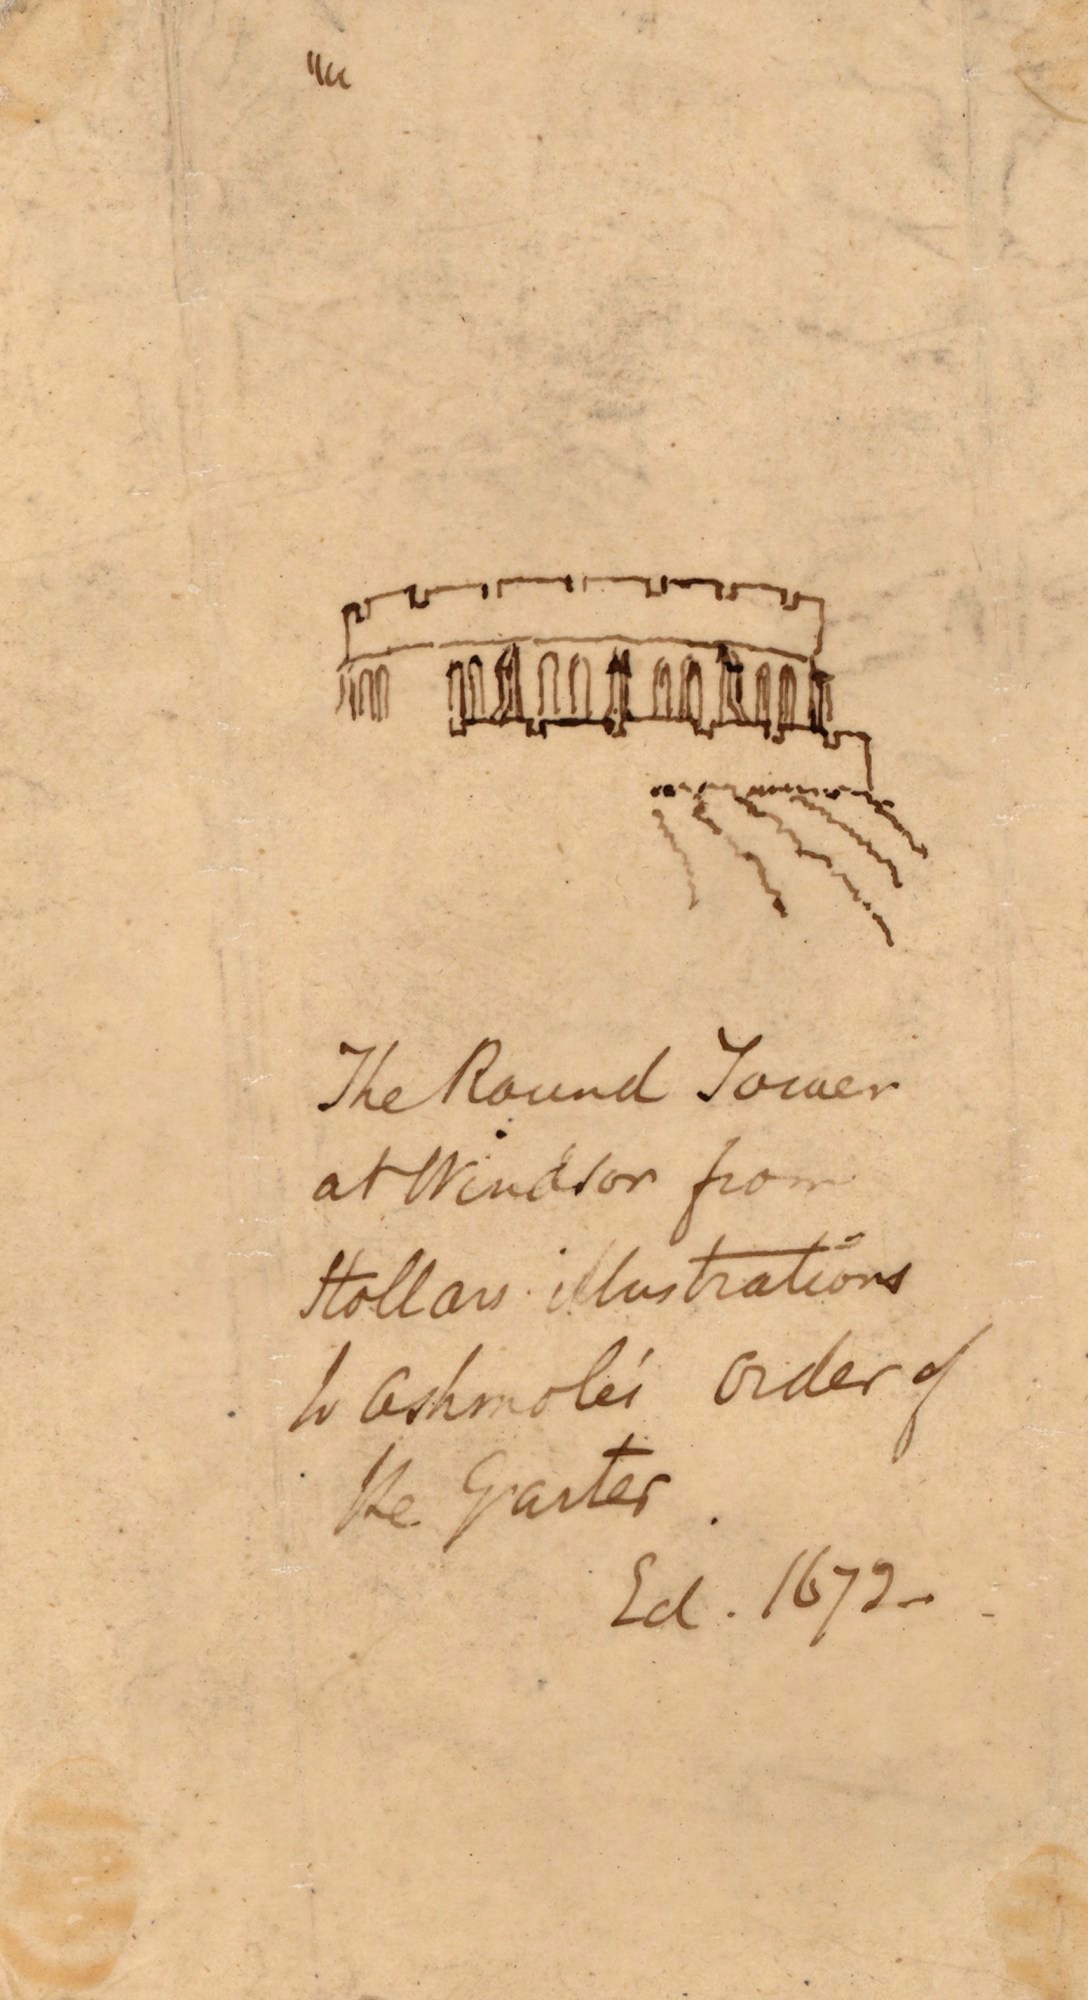 The Round Tower
at Windsor from
Hollars illustrations
to Ashmole's order of
the Garter.
Ed. 1672